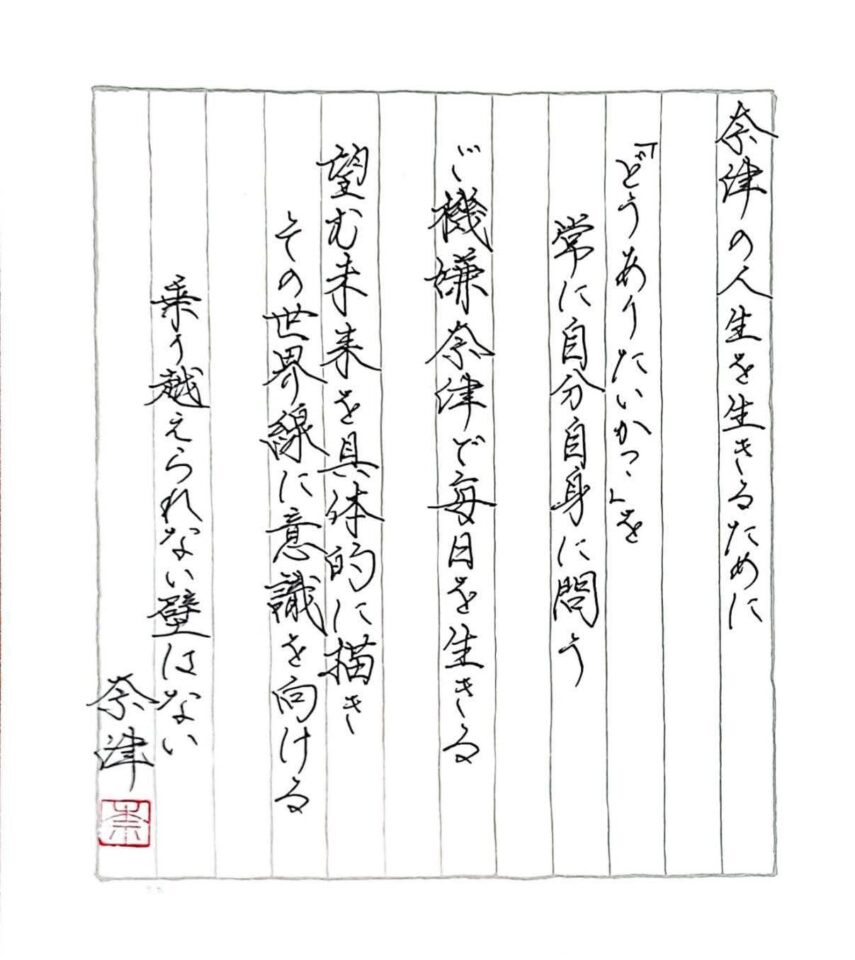 奈津の人生を生きるために
「どうありたいか?」を
常に自分自身に問う
ご機嫌奈津で毎日を生きる
望む未来を具体的に描き
その世界線に意識を向ける
乗り越えられない壁はない
奈津